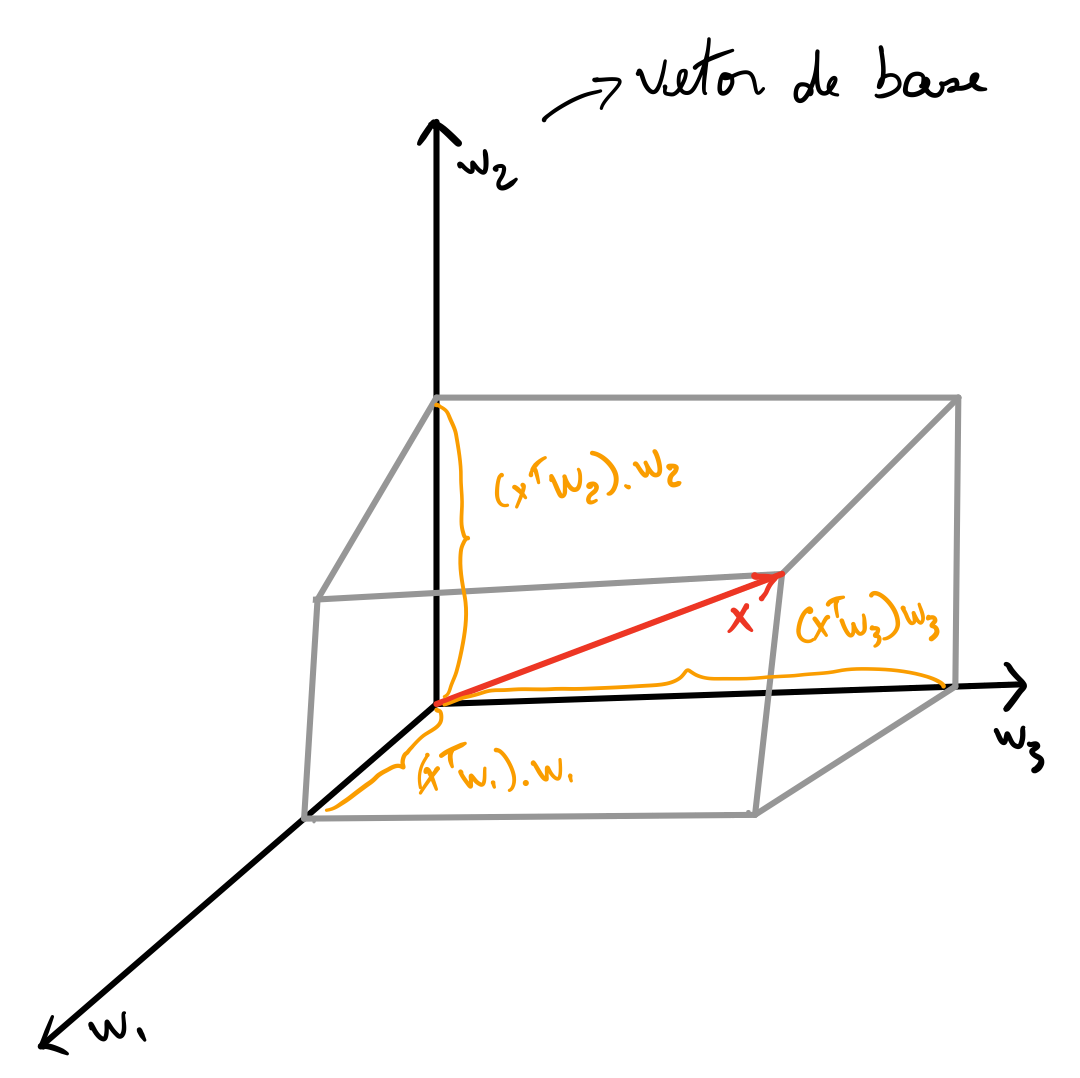 vetor de base
w₂
(xᵀw₂).w₂
x
(xᵀw₃)w₃
w₃
(xᵀw₁).w₁
w₁